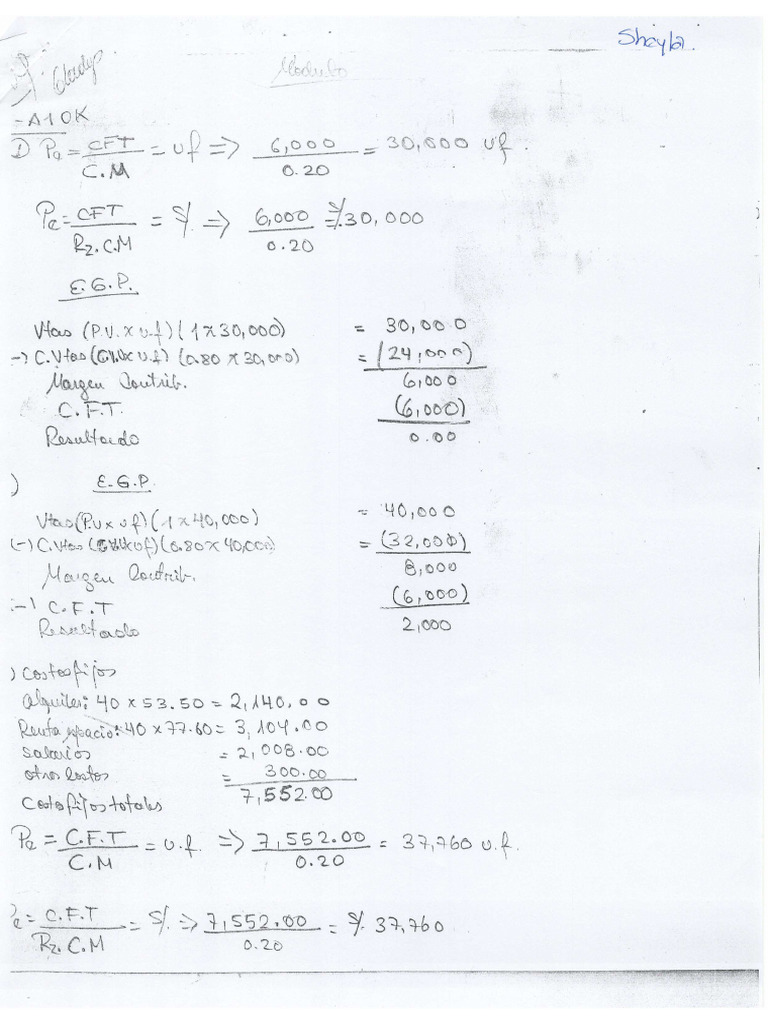 Sheyla.
Gladys
Modulo
-A1OK
D Pe = CFT / C.M = uf => 6,000 / 0.20 = 30,000 uf.
Pe = CFT / Rz.C.M = S/. => 6,000 / 0.20 = S/.30,000
E.G.P.
Vtas (P.V. x u.f) (1 x 30,000) = 30,000
-) C.Vtas ( x u.f) (0.80 x 30,000) = (24,000)
Margen Contrib. 6,000
C.F.T. (6,000)
Resultado 0.00
) E.G.P.
Vtas (P.v x uf) (1 x 40,000) = 40,000
(-) C.Vtas ( x uf) (0.80 x 40,000) = (32,000)
Margen Contrib. 8,000
-) C.F.T (6,000)
Resultado 2,000
) Costos fijos
Alquiler: 40 x 53.50 = 2,140.00
Renta espacio: 40 x 77.60 = 3,104.00
Salarios = 2,008.00
otros Costos = 300.00
Costo fijos totales 7,552.00
Pe = C.F.T / C.M = u.f. => 7,552.00 / 0.20 = 37,760 u.f.
Pe = C.F.T / Rz.C.M = S/. => 7,552.00 / 0.20 = S/. 37,760